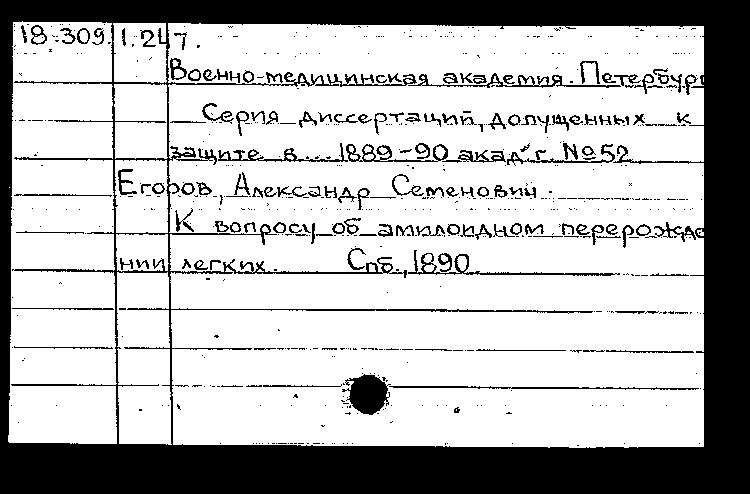 18.309.1.247.
Военно-медицинская академия. Петербург
Серия диссертаций, допущенных к
защите в ... 1889-90 акад. г. №52
Егоров, Александр Семенович.
К вопросу об амилоидном перерожде
нии легких. Спб., 1890.